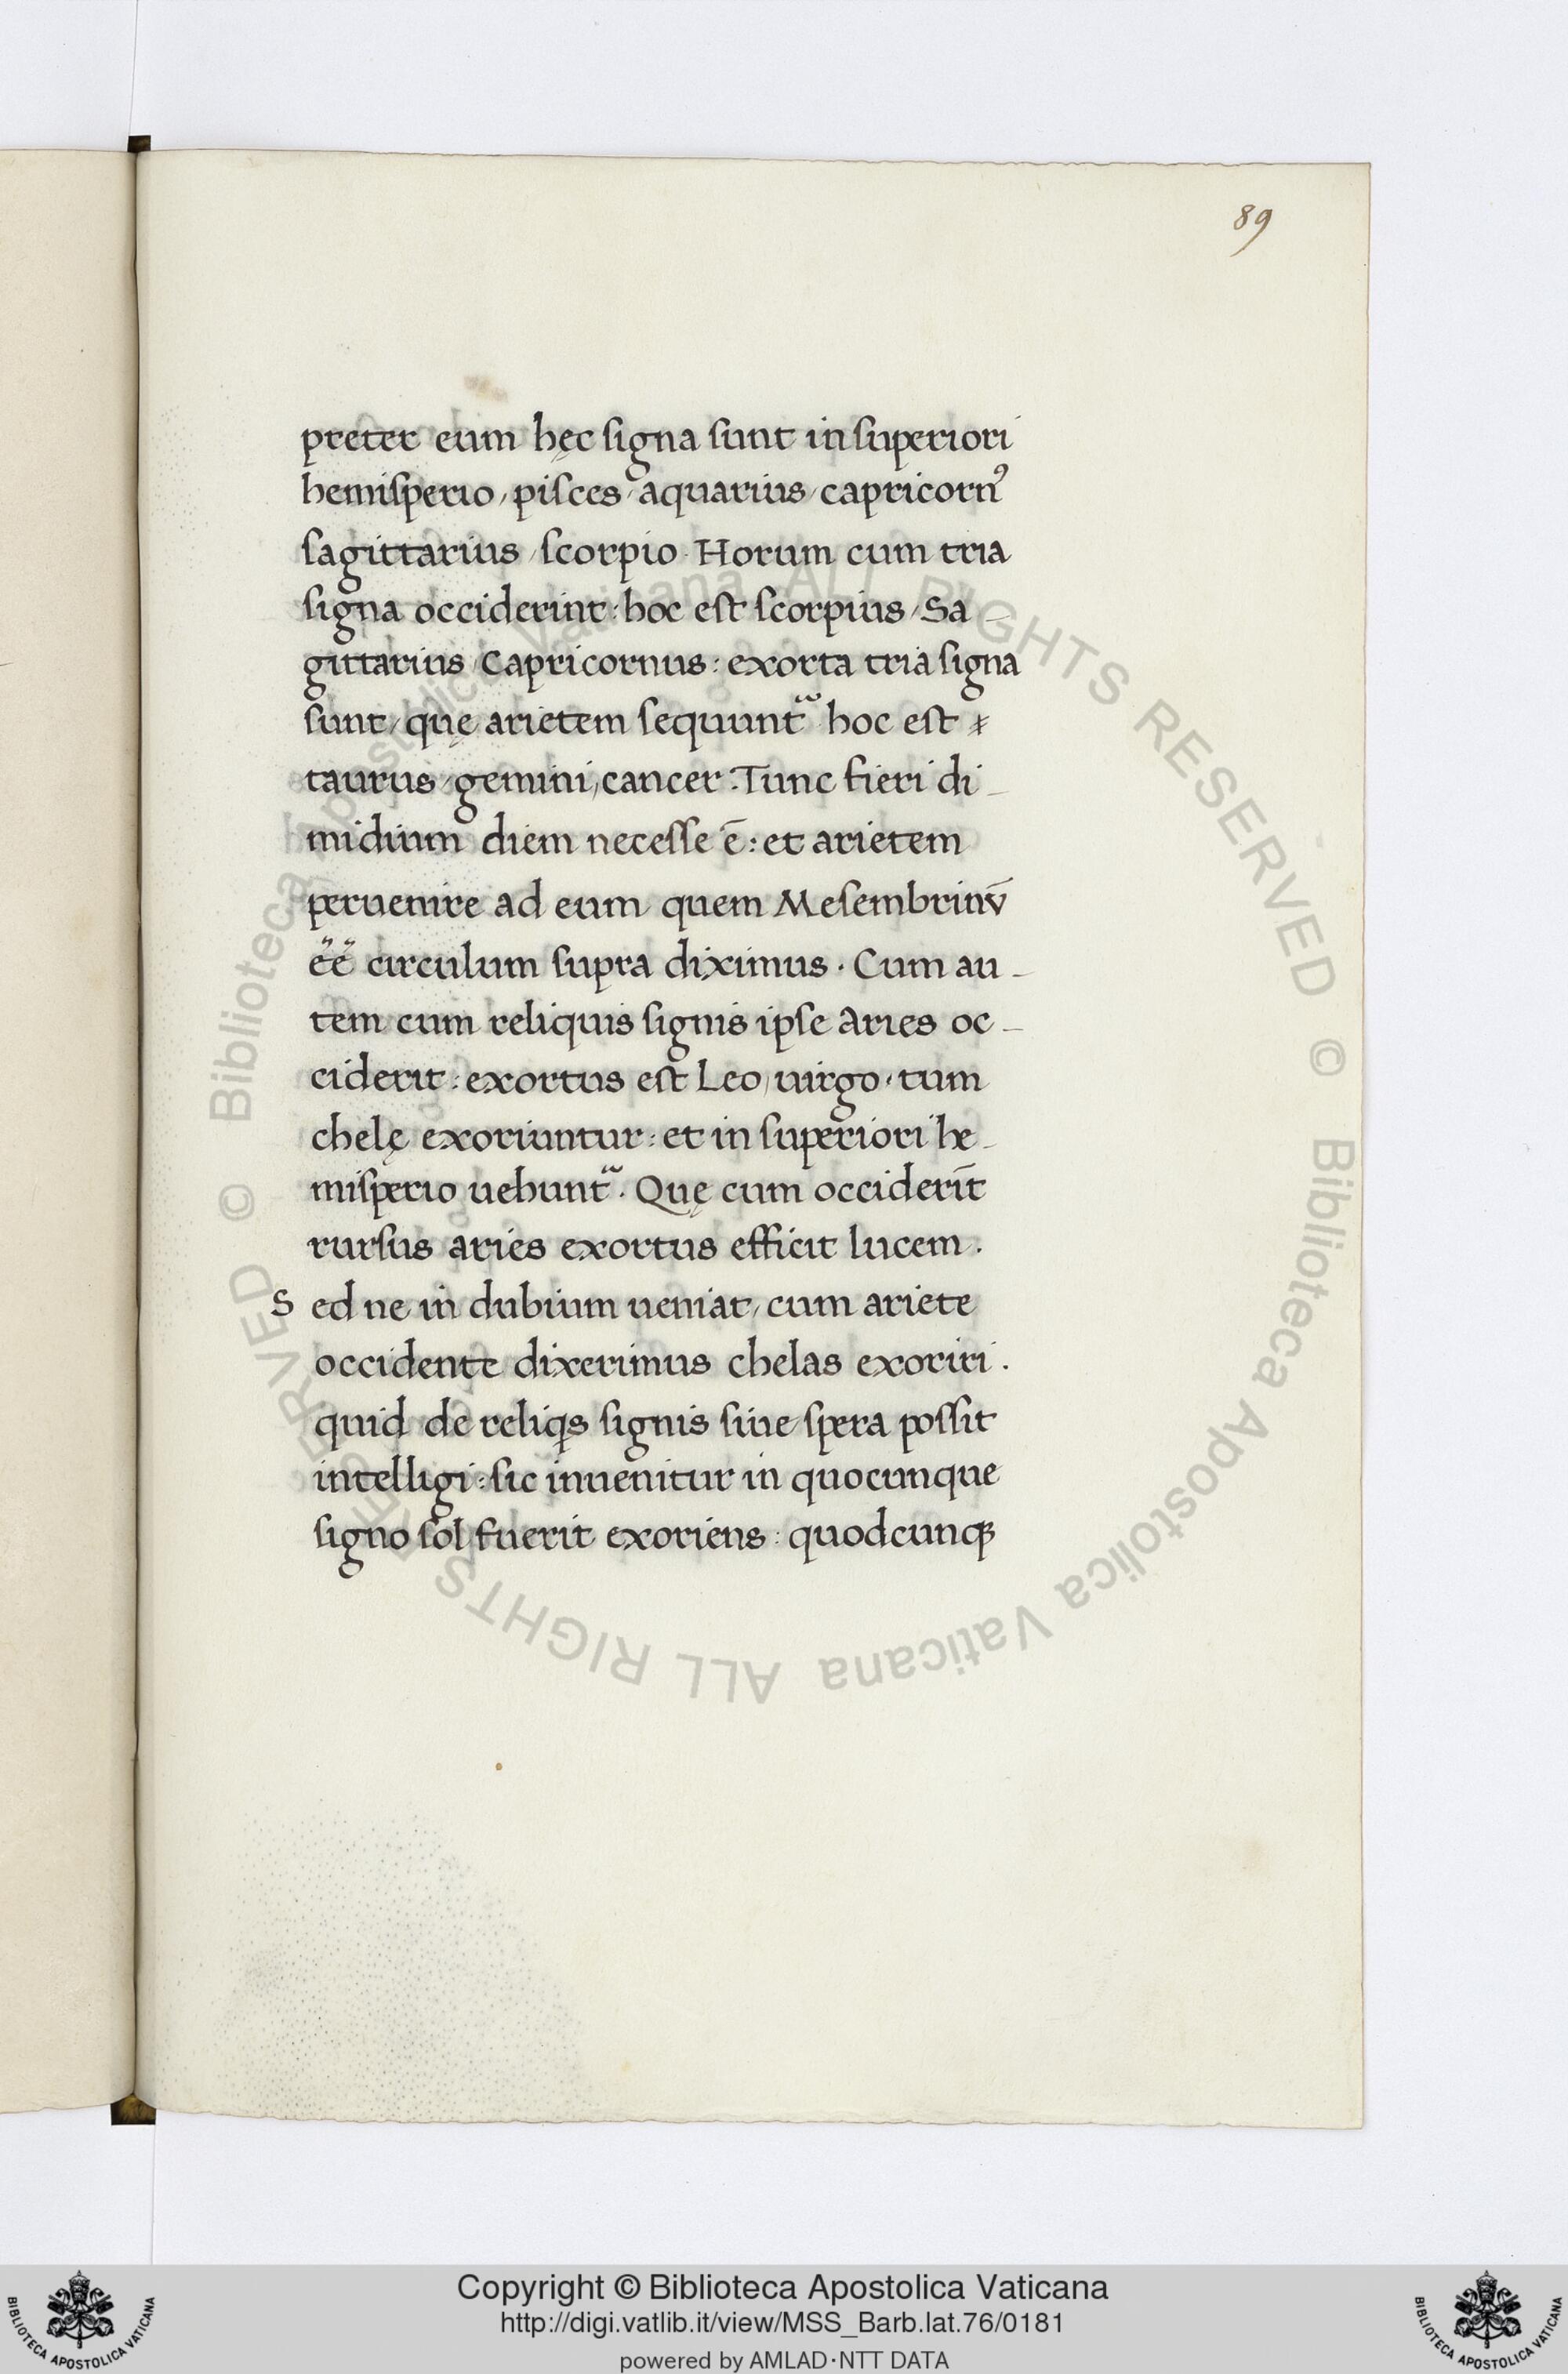 89
preter eum hęc signa sunt in superiori
hemisperio, pisces, aquarius, capricornꝰ
sagittarius, scorpio. Horum cum tria
signa occiderint: hoc est scorpius, Sa-
gittarius, Capricornus: exorta tria signa
sunt, quę arietem sequunt᷑ hoc est
taurus, gemini, cancer. Tunc fieri di-
midium diem necesse ē: et arietem
peruenire ad eum quem Mesembrinū
e̋e̋ circulum supra diximus. Cum au-
tem cum reliquis signis ipse Aries oc-
ciderit: exortus est Leo, uirgo, tum
chelę exoriuntur: et in superiori he-
misperio uehunt᷑. Quę cum occiderīt
rursus aries exortus efficit lucem.
S ed ne in dubium ueniat, cum ariete
occidente dixerimus chelas exoriri.
quid de reliqꝫs signis siue spera possit
intelligi: sic inuenitur in quocunque
signo sol fuerit exoriens: quodcunqꝫ
© Biblioteca Apostolica Vaticana ALL RIGHTS RESERVED © Biblioteca Apostolica Vaticana ALL RIGHTS RESERVED
BIBLIOTECA APOSTOLICA VATICANA
Copyright © Biblioteca Apostolica Vaticana
http://digi.vatlib.it/view/MSS_Barb.lat.76/0181
powered by AMLAD·NTT DATA
BIBLIOTECA APOSTOLICA VATICANA